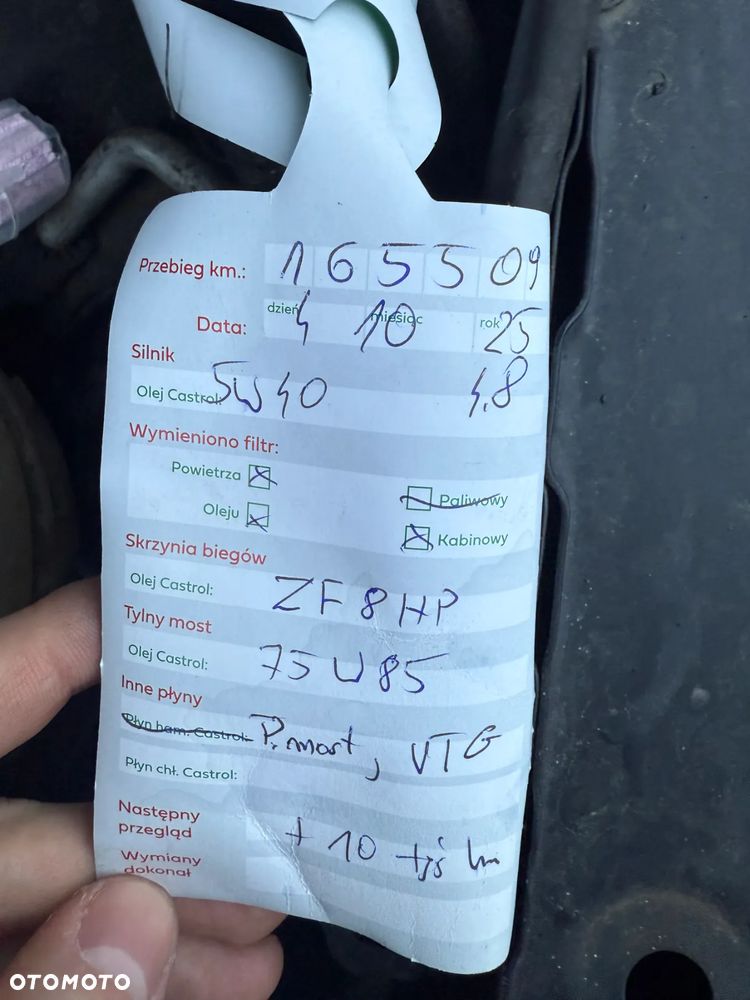 Przebieg km.: 165509
Data: dzień 4 miesiąc 10 rok 25
Silnik
Olej Castrol: 5W40 4.8
Wymieniono filtr:
Powietrza
Paliwowy
Oleju
Kabinowy
Skrzynia biegów
Olej Castrol: ZF8HP
Tylny most
Olej Castrol: 75W85
Inne płyny
Płyn ham. Castrol: P.most, VTG
Płyn chł. Castrol:
Następny przegląd + 10 tyś km
Wymiany dokonał
OTOMOTO